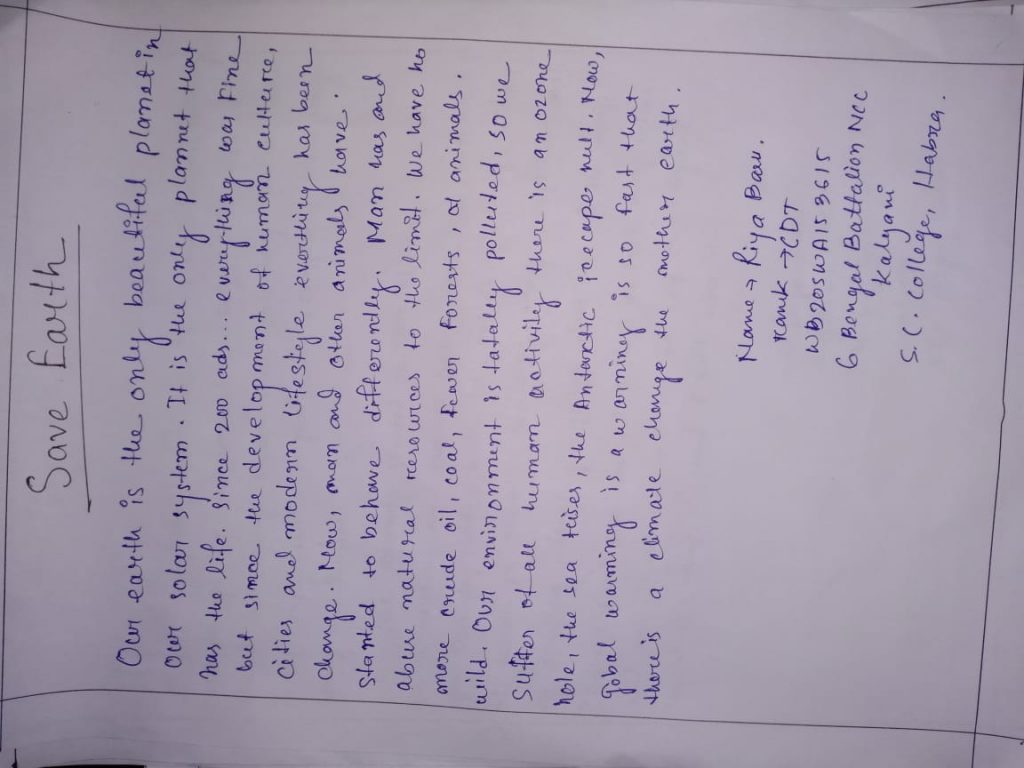 Save Earth
Our earth is the only beautiful planet in
our solar system. It is the only plannet that
has the life. Since 200 ads... everything was Fine
but since the development of human culture,
Cities and modern lifestyle everthing has been
change. Now, man and other animals have.
Started to behave differently. Man has and
abuse natural resources to the limit. We have no
more crude oil, coal, fewer forests, of animals.
wild. Our environment is totally polluted, so we
Suffer of all human activity there is an ozone
hole, the sea rises, the Antarctic icecaps melt. Now,
global warming is a worning is so fast that
there is a climate change the mother earth.
Name → Riya Bau.
rank → CDT
WB20SWA153615
6 Bengal Battalion NCC
Kalyani
S.C. College, Habra.